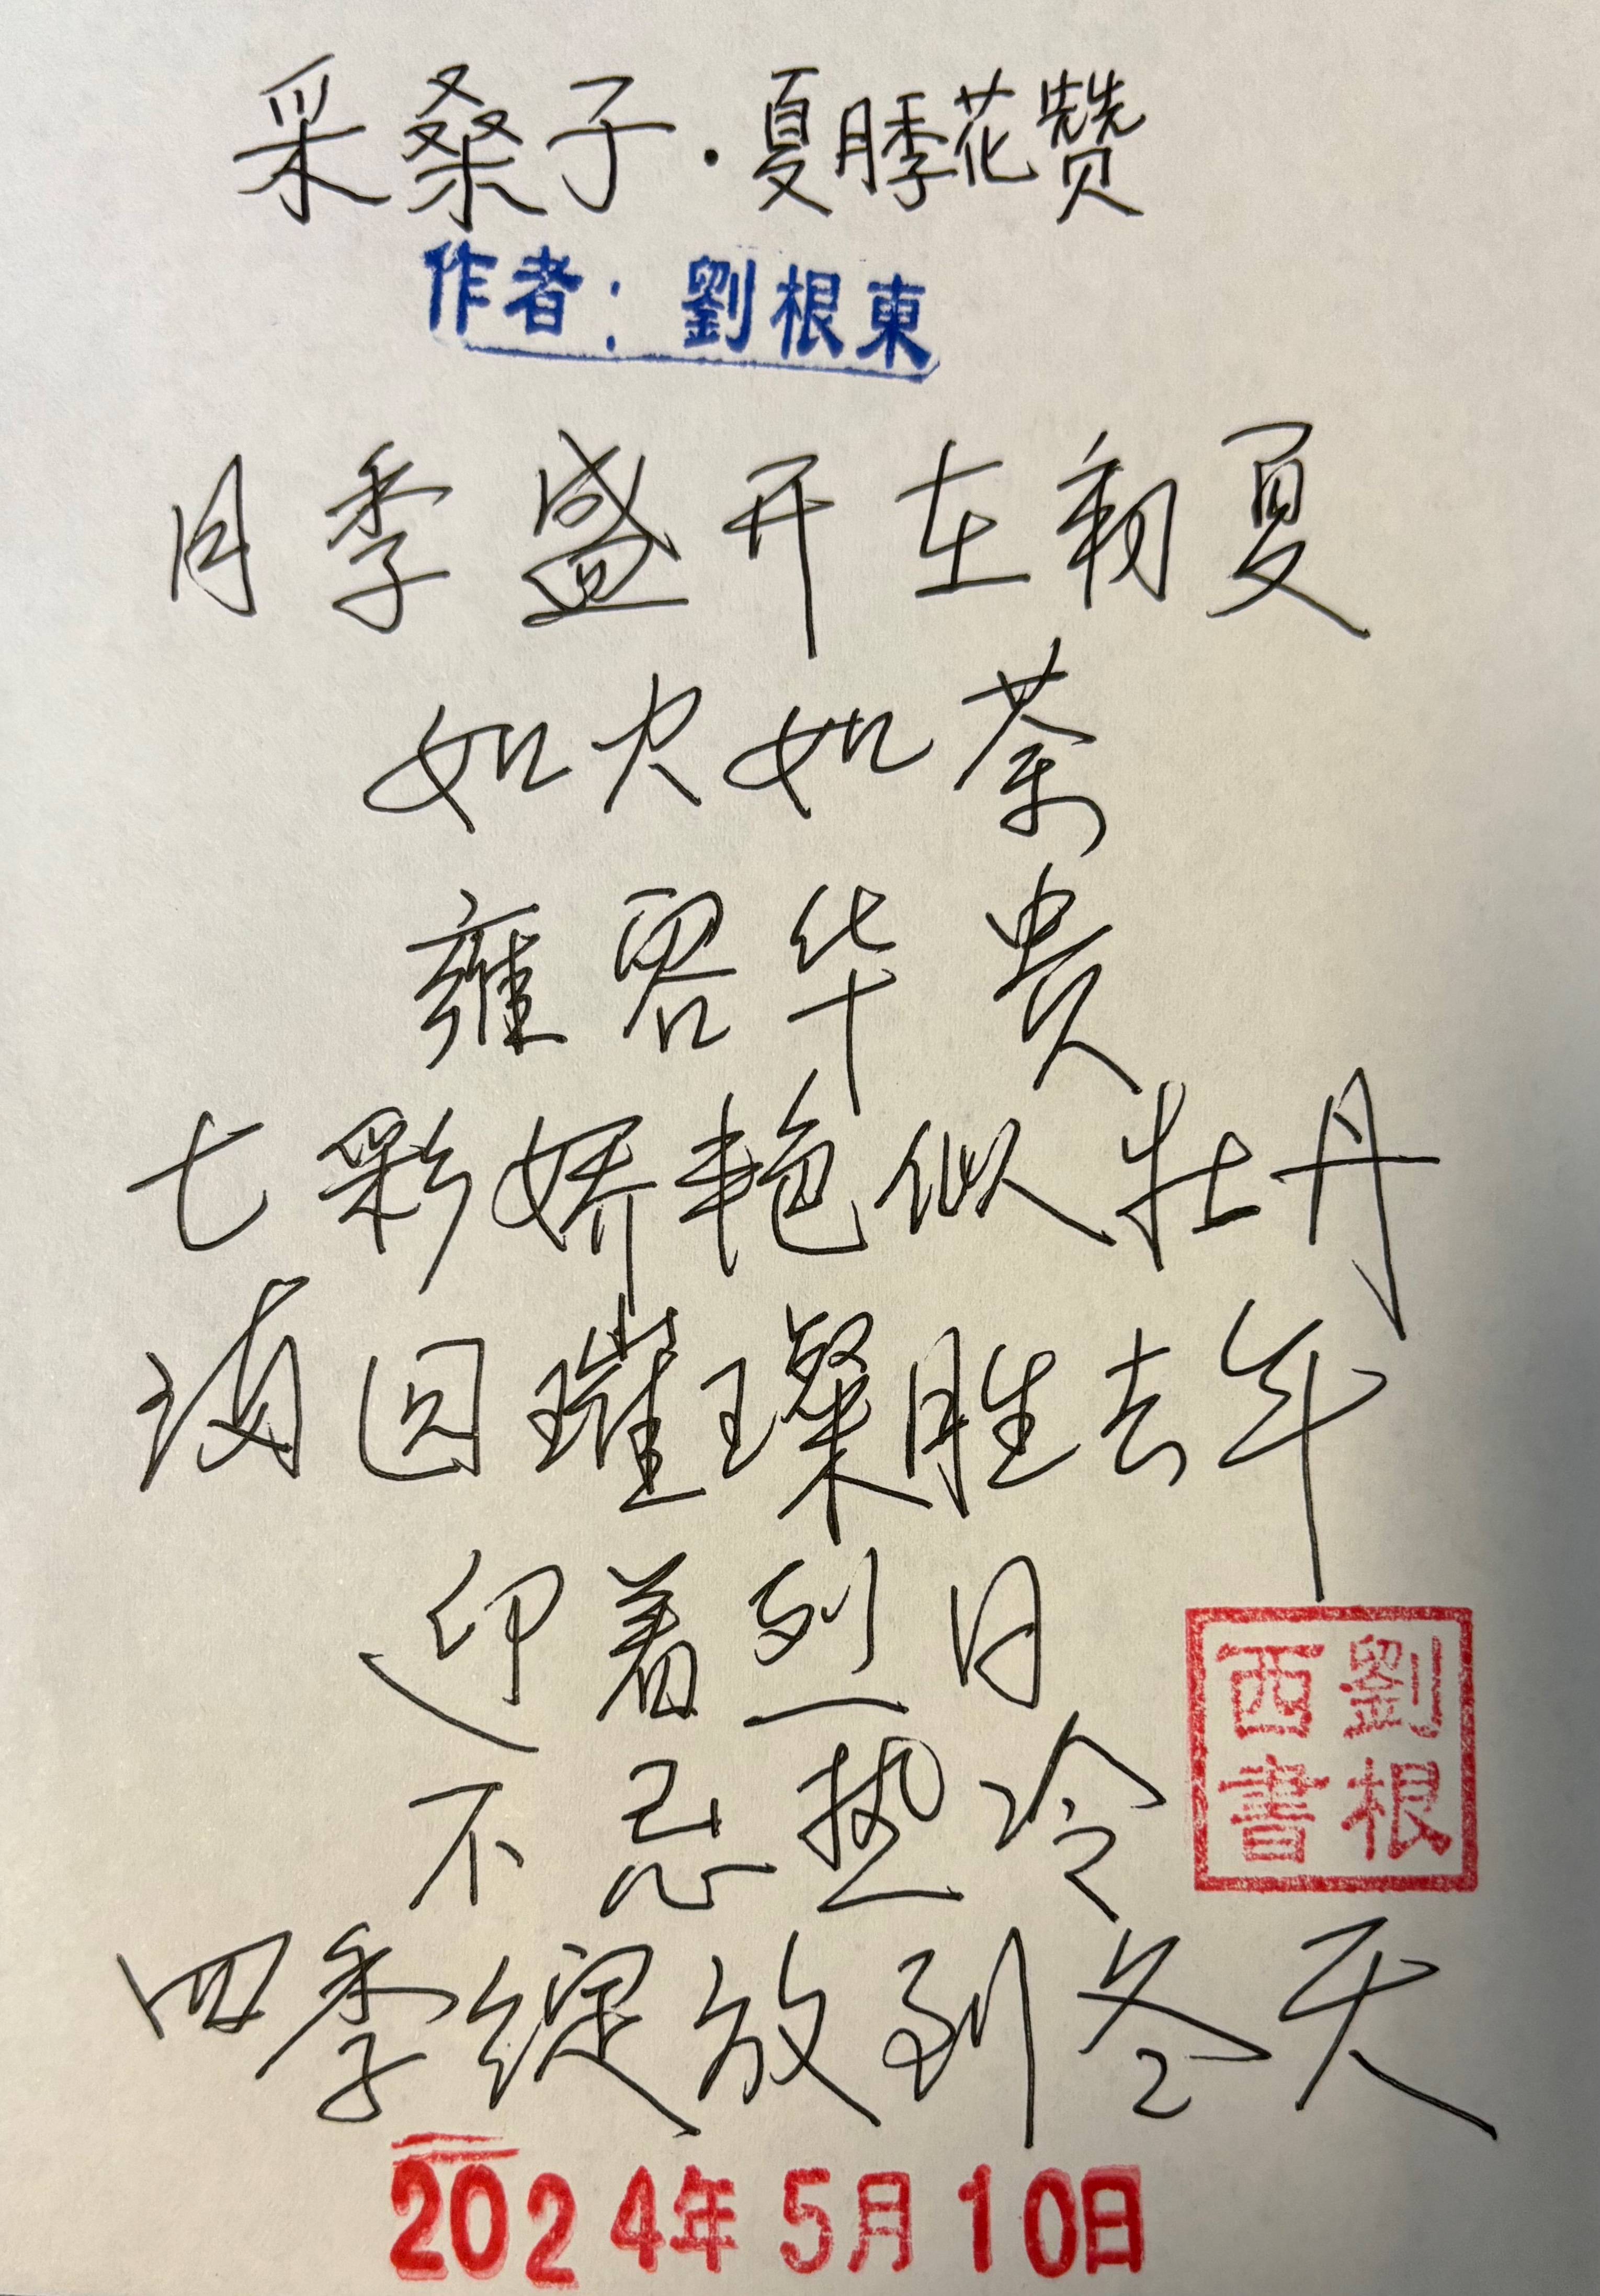 采桑子·夏月季花赞
作者：劉根東
月季盛开在初夏
如火如荼
雍容华贵
七彩娇艳似牡丹
满园璀璨胜去年
迎着烈日
不忌垫冷
四季绽放到冬天
劉根
西書
2024年5月10日